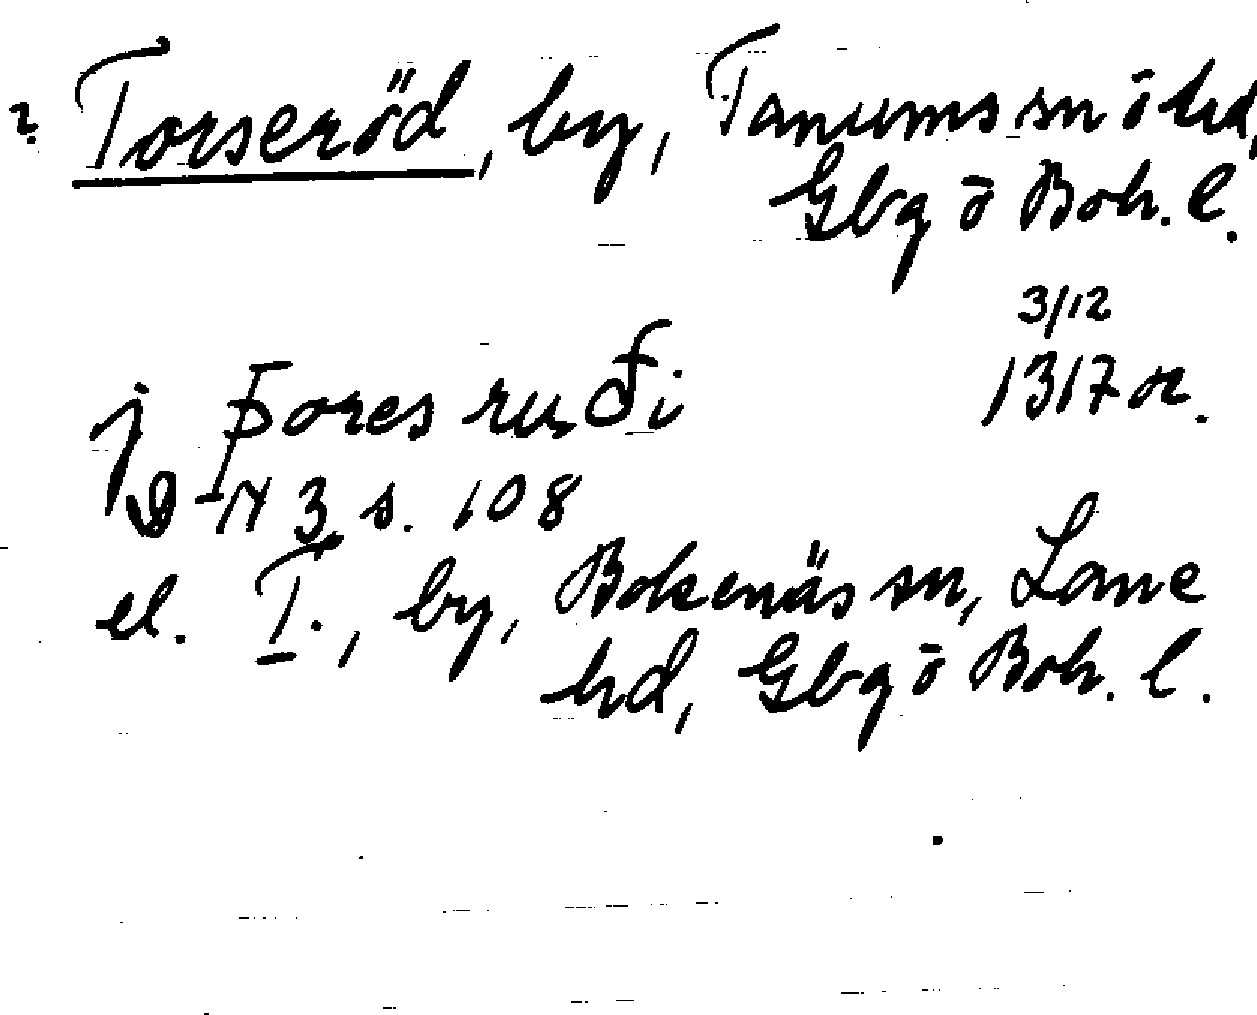 ? Torseröd, by, Tanums sn ō hd,
Gbg ō Boh. l.
3/12
j Þores ruði 1317 or.
DN 3 s. 108
el. T., by, Bokenäs sn, Lane
hd, Gbg ō Boh. l.